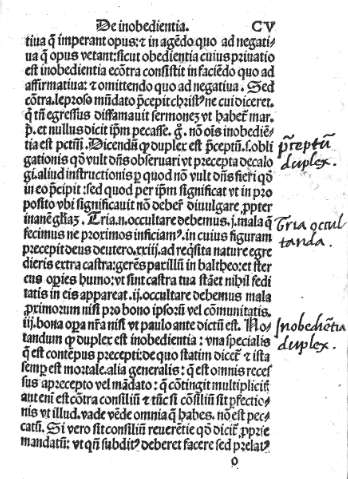 De inobedientia. CV
tiua q̄ imperant opus: ⁊ in agēdo quo ad negati⸗
ua q̄ opus vetant: sicut obedientia cuius priuatio
est inobedientia ecōtra consistit in faciēdo quo ad
affirmatiua: ⁊ omittendo quo ad negatiua. Sed
cōtra. leproso mūdato p̄cepit christꝰ ne cui diceret.
q̄ tn̄ egressus diffamauit sermonez vt habet̄ mar.
p̄. et nullus dicit ip̄m pecasse. g̊. nō oīs inobediē⸗
tia est pctm̄. Dicendū ꝙ duplex est p̄ceptū. s. obli
gationis qđ vult dn̄s obseruari vt precepta decalo
gi. aliud instructionis ꝑ quod nō vult dn̄s fieri qđ
in eo p̄cipit: sed quod per ip̄m significat vt in pro
posito vbi significauit nō debere diuulgare ꝓpter
inanē gl̄iaꝫ. Tria .n. occultare debemus. j. mala q̄
fecimus ne proximos inficiamꝰ. in cuius figuram
precepit deus deutero. xxiij. ad req̄sita nature egre
dieris extra castra: gerens paxillū in baltheo: et ster
cus oꝑies humo: vt sint castra tua 
 nihil fedi
tatis in eis appareat. ij. occultare debemus mala
ꝓximorum nisi pro bono ipsoꝝ vel cōmunitatis.
iij. bona oꝑa nr̄a nisi vt paulo ante dictū est. No⸗
tandum ꝙ duplex est inobedientia: vna specialis
q̄ est contēptus precepti: de quo statim dicet̄ ⁊ ista
semꝑ est mortale. alia generalis: q̄ est omnis reces
sus a precepto vel mādato: q̄ cōtingit multiplicit̄
aut eni est cōtra consiliū ⁊ tūc si cōsiliū sit ꝑfectio⸗
nis vt illud. vade vēde omnia q̄ habes. nō est pec⸗
catū. Si vero sit consiliū reuerētie qđ dicit̄ ꝓprie
mandatū: vt qn̄ subditꝰ deberet facere sed prelatꝰ
o
p̄ceptū
duplex.
Tria occul
tanda.
Inobediētia
duplex.